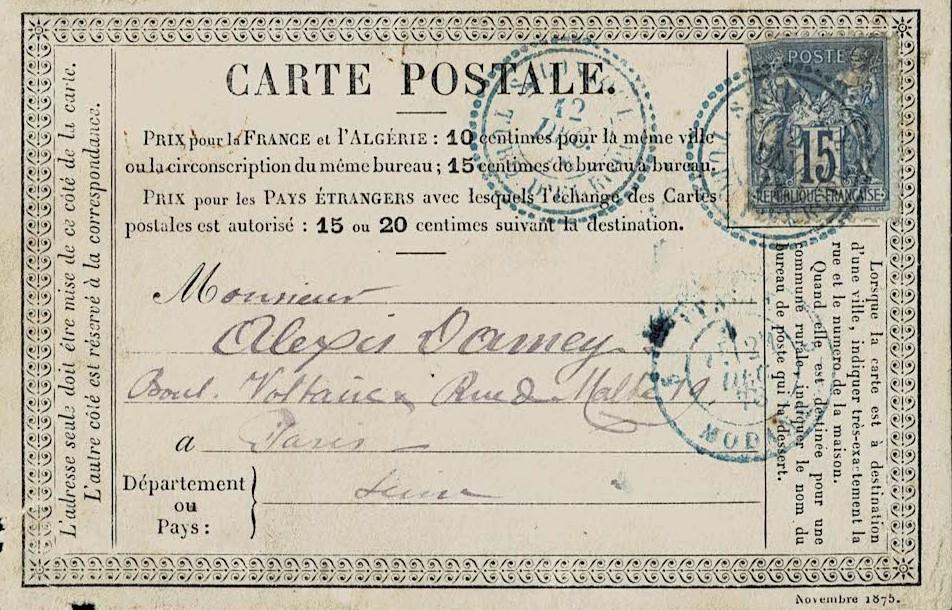 L'adresse seule doit être mise de ce côté de la carie.
L'autre côté est réservé à la correspondance.
CARTE POSTALE.
PRIX pour la FRANCE et l'ALGÉRIE : 10 centimes pour la même ville
ou la circonscription du même bureau ; 15 centimes de bureau à bureau.
PRIX pour les PAYS ÉTRANGERS avec lesquels l'échange des Cartes
postales est autorisé : 15 ou 20 centimes suivant la destination.
POSTE
15
REPUBLIQUE FRANÇAISE
12
Monsieur
Alexis Damey
Boul. Voltaire Rue de Malte 19.
a Paris
Département
ou
Pays :
Seine
MODANE
Lorsque la carte est à destination
d'une ville, indiquer très-exactement la
rue et le numéro de la maison.
Quand elle est destinée pour une
commune rurale, indiquer le nom du
bureau de poste qui la dessert.
Novembre 1875.